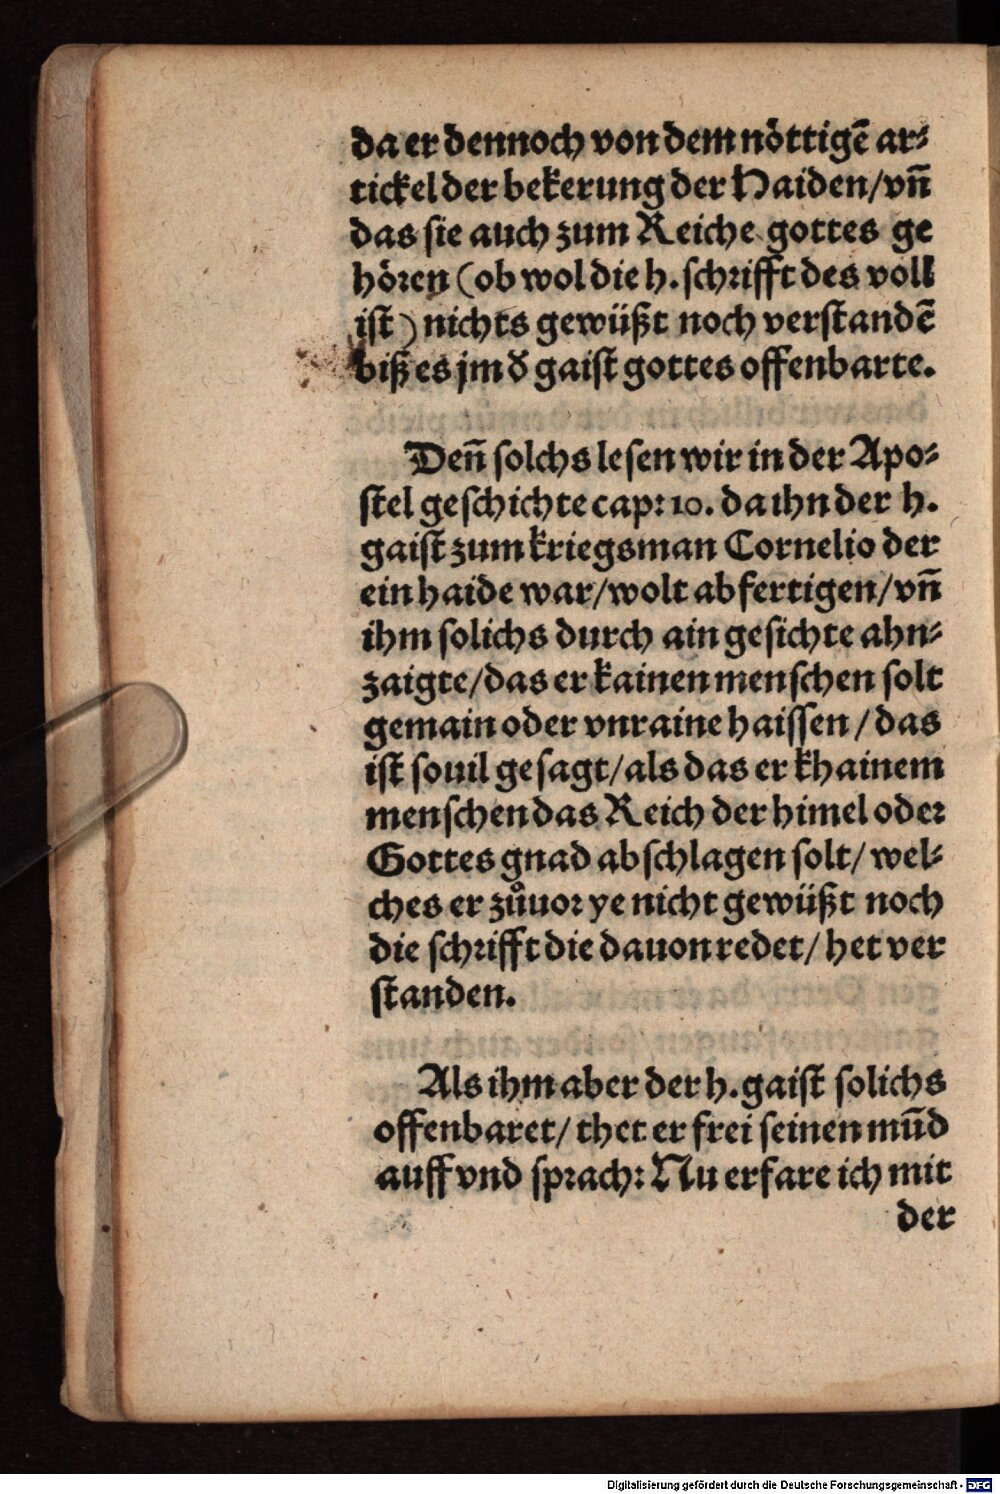 da er dennoch von dem nöttigē ar⸗
tickel der bekerung der Haiden/vñ
das sie auch zum Reiche gottes ge
hören (ob wol die h. schrifft des voll
ist) nichts gewüßt noch verstandē
biß es jm d̕ gaist gottes offenbarte.
Deñ solchs lesen wir in der Apo⸗
stel geschichte cap: 10. da ihn der h.
gaist zum kriegsman Cornelio der
ein haide war/wolt abfertigen/vñ
ihm solichs durch ain gesichte ahn⸗
zaigte/das er kainen menschen solt
gemain oder vnraine haissen/das
ist souil gesagt/als das er khainem
menschen das Reich der himel oder
Gottes gnad abschlagen solt/wel⸗
ches er zůuor ye nicht gewüßt noch
die schrifft die dauon redet/het ver
standen.
Als ihm aber der h. gaist solichs
offenbaret/thet er frei seinen mūd
auff vnd sprach: Nu erfare ich mit
der
Digitalisierung gefördert durch die Deutsche Forschungsgemeinschaft - DFG